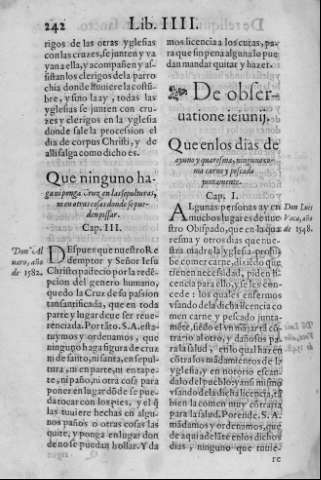 242
Lib. IIII.
rigos de las otras yglesias
con las cruzes, se junten y va
yan a ella, y acompañen y as-
sistan los clerigos de la parro
chia donde estuuiere la costũ
bre, y sino la ay, todas las
yglesias se junten con cru-
zes y clerigos en la yglesia
donde sale la procession el
dia de corpus Christi, y de
alli salga como dicho es.
Que ninguno ha-
ga ni ponga Cruz en las sepulturas,
ni en otras cosas donde se pue-
den pissar.
Cap. III.
Don Al
uaro, año
de 1582.
DEspues que nuestro Re
demptor y Señor Iesu
Christo padecio por la redẽ-
pcion del genero humano,
quedo la Cruz de su passion
tan sanctificada, que en toda
parte y lugar deue ser reue-
renciada. Por tãto. S. A. esta-
tuymos y ordenamos, que
ninguno haga figura de cruz
ni de sancto, ni sancta, en sepul-
tura, ni en parte, ni en tape-
te, ni paño, ni otra cosa para
poner en lugar dõde se pue-
da tocar con los pies, y el q̃
las tuuiere hechas en algu-
nos paños o otras cosas las
quite, y ponga en lugar don
de no se puedan hollar. Y da
mos licencia a los curas, pa-
ra que sin pena alguna lo pue
dan mandar quitar y hazer.
De obser-
uatione ieiunij.
Que en los dias de
ayuno y quaresma, ninguno co-
ma carne y pescado
juntamente.
Cap. I.
Don Luis
Vaca, año
de 1548.
ALgunas personas ay en
muchos lugares de nue
stro Obispado, que en la qua
resma y otros dias que nue-
stra madre la yglesia prohi-
be comer carne, diziẽdo que
tienen necessidad, piden li-
cencia para ello, y se les con-
cede: los quales enfermos
vsando de la dicha licencia co
men carne y pescado junta-
mẽte, siẽdo el vn manjar tã cõ-
trario al otro, y dañoso para
la salud, en lo qual hazen
cõtra los mãdamiẽtos de la
yglesia, y en notorio escan-
dalo del pueblo: y ansi mismo
vsando de la dicha licencia, tã
bien la comen muy contraria
para la salud. Por ende. S. A.
mãdamos y ordenamos, que
de aqui adelãte en los dichos
dias, ninguno que tuuie-
re